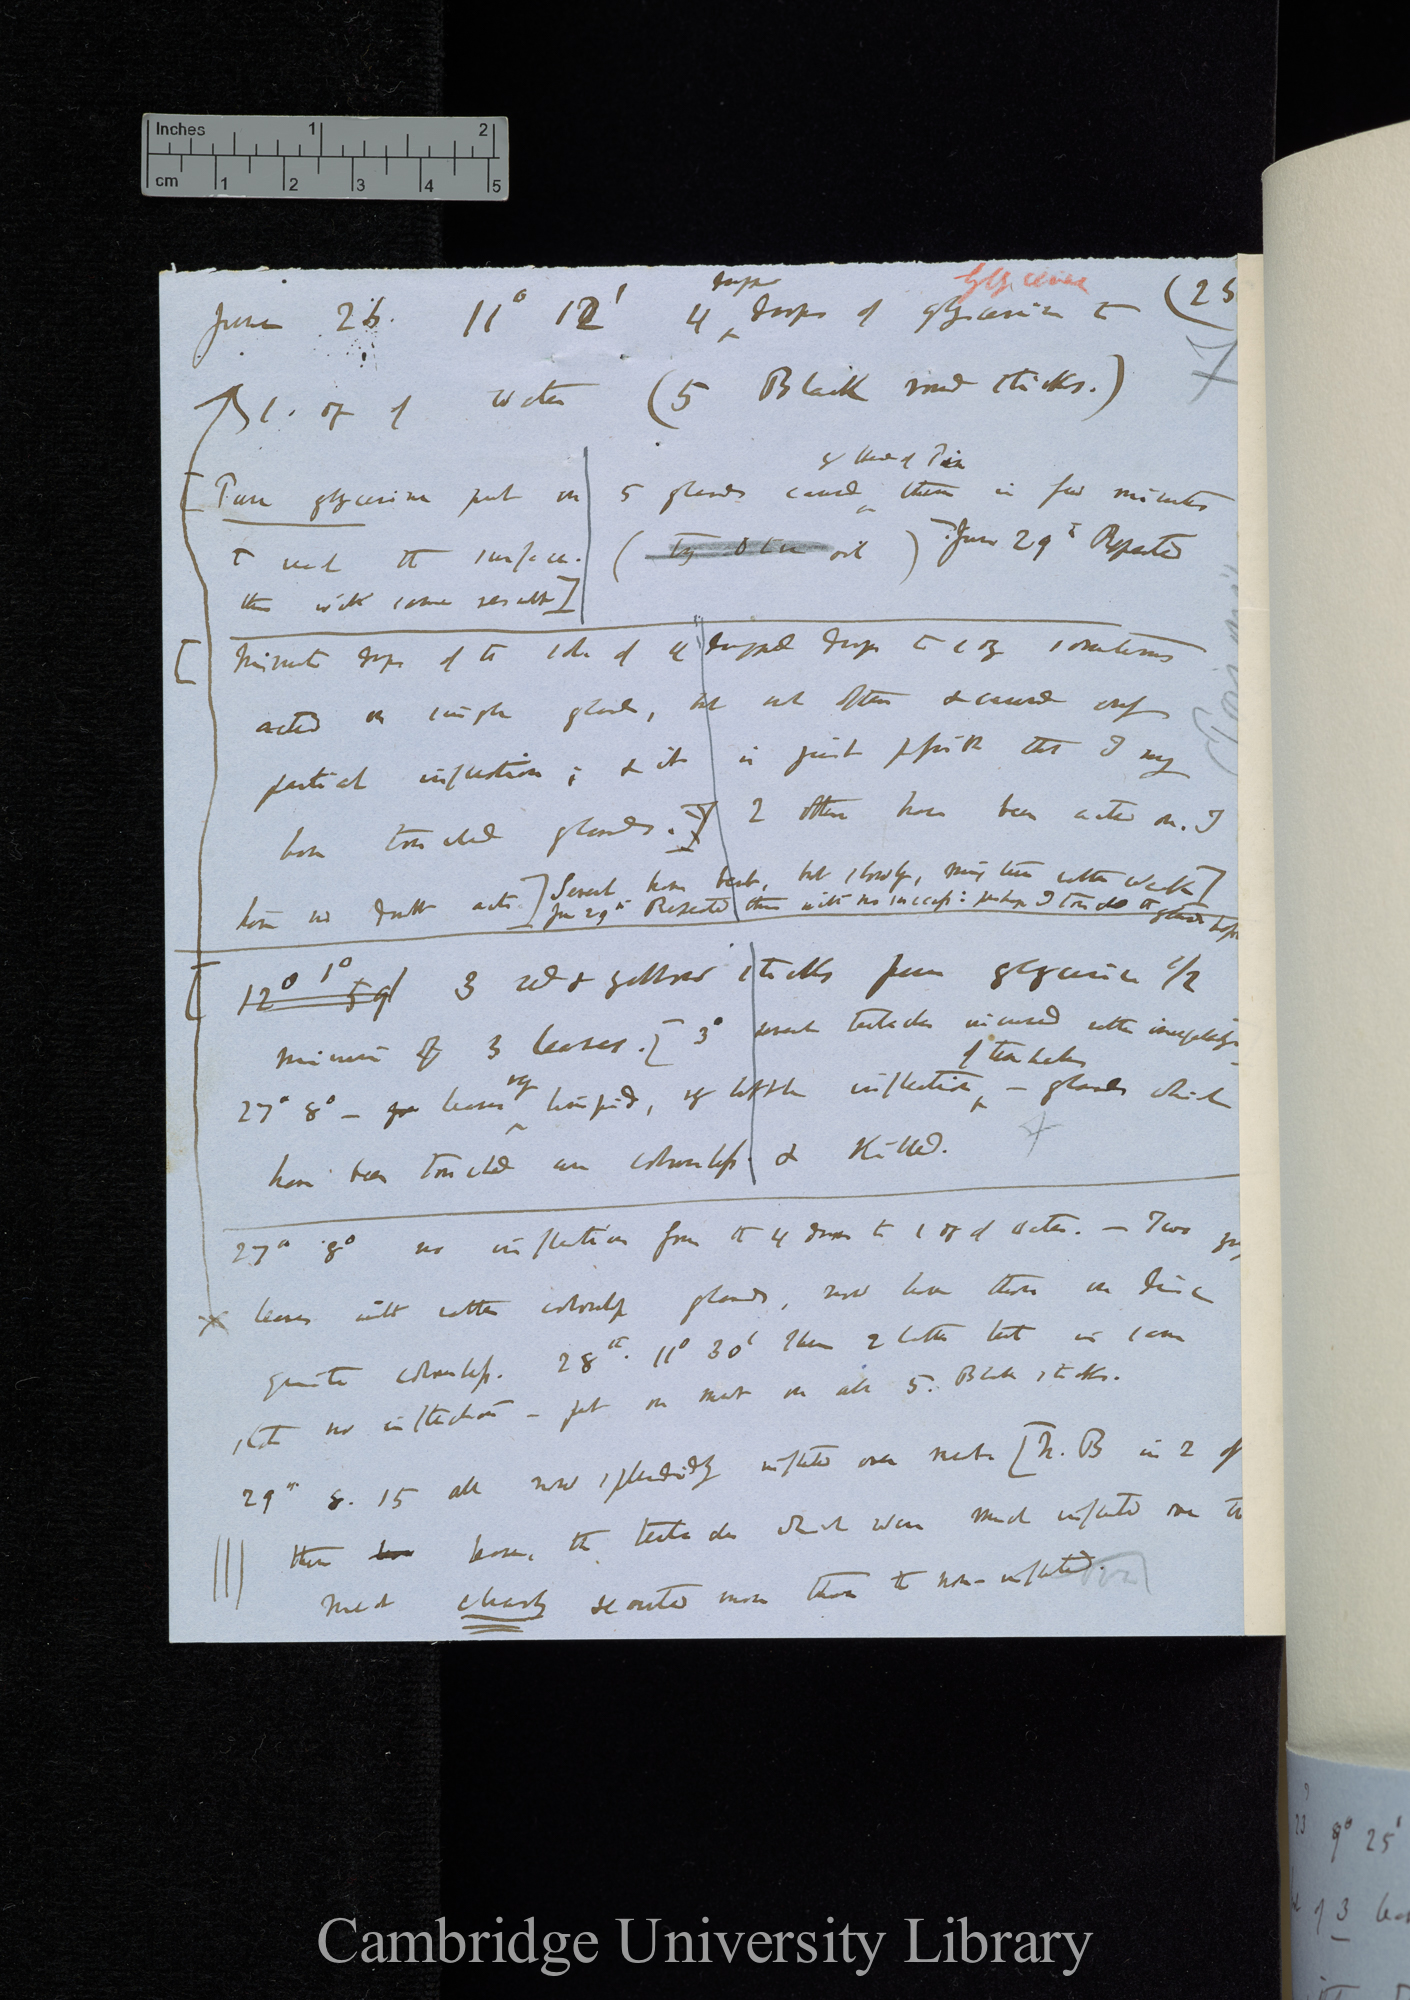 Inches 1 2
cm 1 2 3 4 5
Glycerine
(25
drops
June 26. 11° 12' 4 drops of glycerine to
1. oz of water (5 Black round sticks.)
by Head of Pin
[Pure glycerine put on 5 glands caused them in few minutes
to reach the surface. ( oil ) ] June 29th Repeated
this with same result]
[Minute drops of the soln of 4 dropped drops to 1 oz sometimes
acted on single glands, but not often & caused only
partial inflection; & it is just possible that I may
have touched glands.] 2 others have been acted on. I
have no doubt acts.] Several have bent, but slowly, rather weak]
June 29th Repeated this with no success: perhaps I touched the glands before
[12° 1° 59' 3 red & yellow sticks pure glycerine 1/2
minim of 3 leaves. [3° several tentacles incurved rather irregularly
of tentacles
27° 8° — leaves very limpid, very little inflection — glands which
have been touched are colourless. & Killed.
27th 8° no inflection from the 4 drops to 1 oz of water. — Two
leaves with rather colourless glands, now have those on disc
quite colourless. 28th. 11° 30' These 2 latter but in same
state no inflection — put on meat on all 5. Black sticks.
29th 8. 15 all now splendidly inflected over meat [N.B in 2 of
these leaves, the tentacles which were much inflected over the
meat clearly secreted more than the non-inflected.
9° 25'
of 3
Cambridge University Library